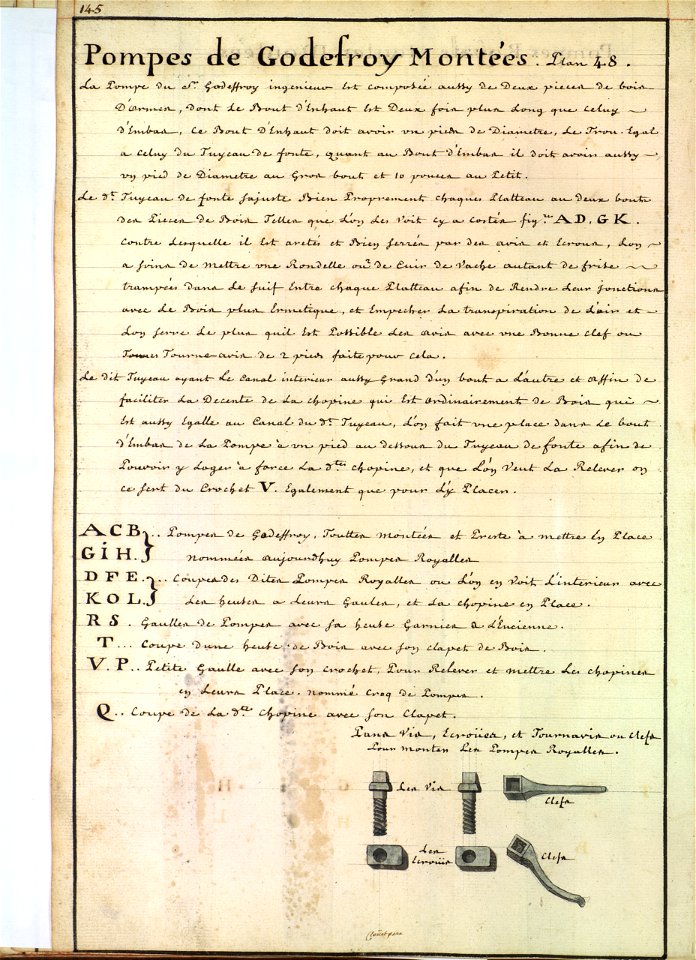 145
Pompes de Godefroy Montées. Plan 48.
La Pompe du Sr. Godeffroy ingenieur Est composée aussy de Deux pieces de bois
D'ormes, dont Le Bout d'Enhaut Est Deux fois plus Long que celuy
d'Embas, ce Bout D'Enhaut doit avoir vn pieds de Diametre, Le Trou Egal
a celuy du Tuyeau de fonte, quant au Bout d'Embas il doit avoir aussy
vn pied de Diametre au Gros bout et 10 pouces au Petit.
Le dt. Tuyeau de fonte sajuste Bien Proprement chaques Platteau au deux bouts
des Pieces de Bois Telles que L'on Les Voit cy a costés figre A D. G K.
contre Lesquelle il Est aretés et Bien serrés par des avis et Ecrous, L'on
a soins de mettre vne Rondelle ou de Cuir de Vache autant de frise
trampées dans Le suif Entre chaque Platteau afin de Rendre Leur Jonctions
avec Le Bois plus Ermetique, et Empecher La transpiration de L'air et
L'on serre Le plus quil Est Possible Les avis avec vne Bonne clef ou
Tourne avis de 2 pieds faite pour cela.
Le dit Tuyeau ayant Le Canal interieur aussy Grand d'un bout a L'autre et affin de
faciliter La Decente de La chopine qui Est ordinairement de Bois qui
Est aussy Egalle au Canal du dt. Tuyeau, L'on fait vne place dans Le bout
d'Embas de La Pompe à vn pied au dessous du Tuyeau de fonte afin de
Pouvoir y Loger à force La dtte chopine, et que L'on Veut La Relever on
ce sert du Crochet V. Egalement que pour L'y Placer.
A C B } .. Pompes de Godeffroy, Touttes montées et Prests à mettre En Place
G i H. } nommées aujourdhuy Pompes Royalles
D F E. } .. Coupes des Dites Pompes Royalles ou L'on en Voit L'interieur avec
K O L. } Les heuses a Leurs Gaules, et La chopine en Place.
R S . Gaulles de Pompes avec sa heuse Garnies à L'Encienne.
T ... Coupe D'une heuse de Bois avec son clapet de Bois.
V. P .. Petite Gaulle avec son Crochet, Pour Relever et mettre Les chopines
en Leurs Place. nommé Croq de Pompes.
Q .. Coupe de La dte. Chopine avec son Clapet.
Pans Vis, Ecroües, et Tournavis ou Clefs
Pour monter Les Pompes Royalles.
Les Vis
Clefs
Les
Ecroüs
Clefs